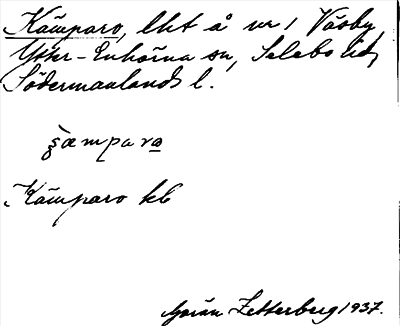 Kämparo, lht å nr 1 Väsby,
Ytter-Enhörna sn, Selebo hd,
Södermanlands l.
Kämparo kb
Göran Zetterberg 1937.